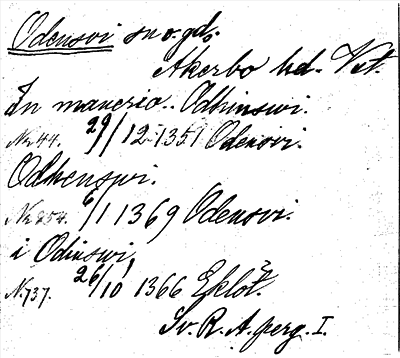 Odensvi sn o. gd.
Åkerbo hd. Vstm.
In manerio.. Odhinswi.
Nr. 44. 29/12 1351 Odensvi.
Odhenswi.
Nr. 254. 6/1 1369 Odensvi.
i Odinswi,
N. 737. 26/10 1366 Eklöt.
Sv. R. A. perg. I.